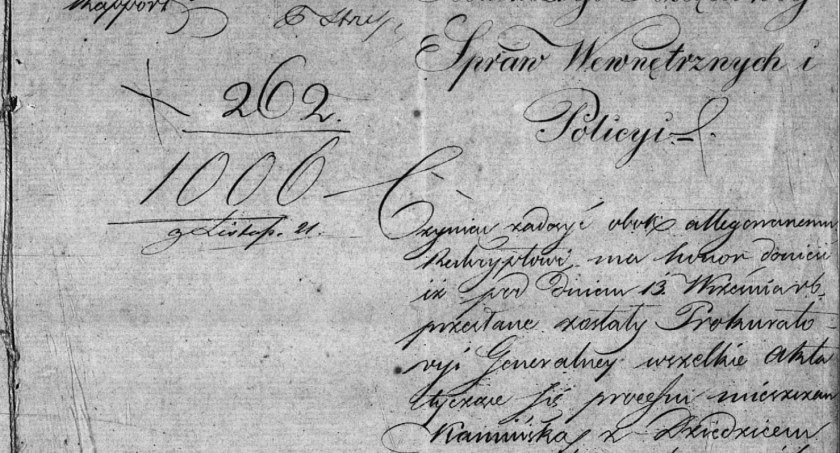 Rapport
Spraw Wewnętrznych i
Policyi
262.
1006
9 Listop. 21.
Czyniąc zadosyć obok allegowanemu
Reskryptowi ma honor donieść
iż pod dniem 13. Września rb.
przesłane zostały Prokurato
ryi Generalney wszelkie Akta
tyczące się processu mieszczan
Kamińska z Dziedzicem